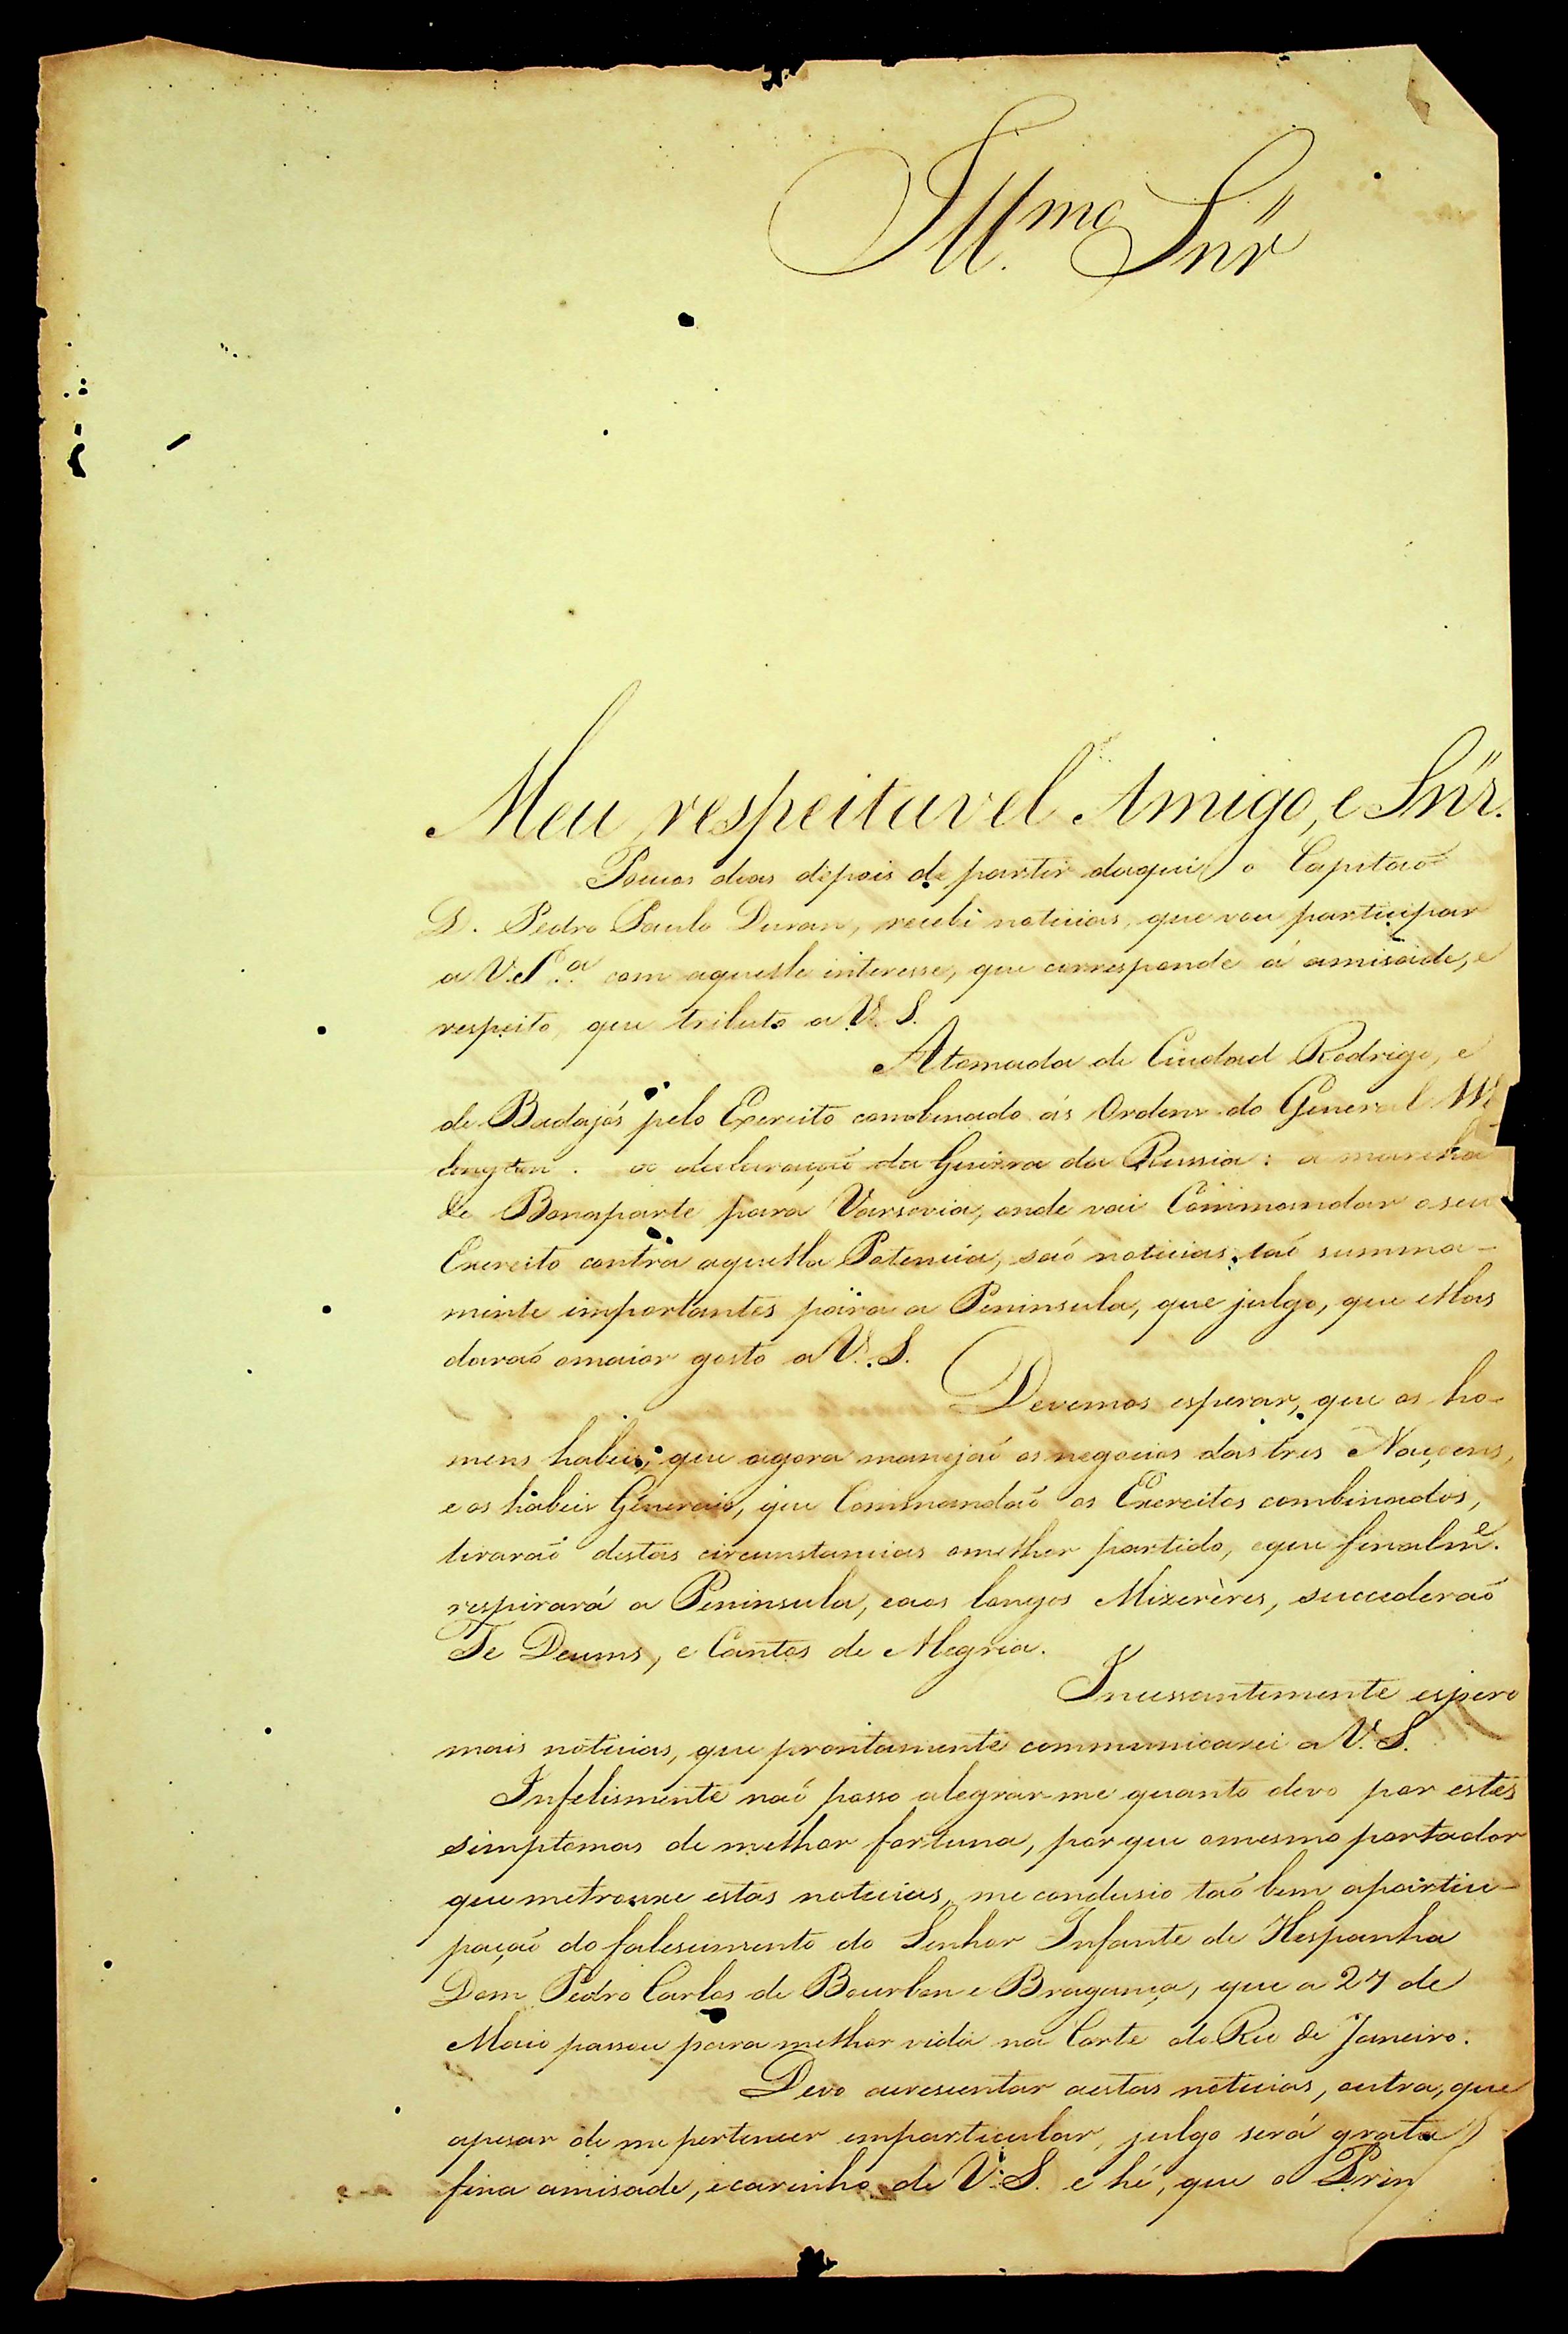 Ill.mo Snr
Meu respeitavel Amigo, e Snr.
Poucos dias depois de partir daqui o Capitaõ
D. Pedro Paulo Duran, recebi noticias, que vou participar
a V.S.a com aquelle interesse, que corresponde á amisade, e
respeito, que tributo a V. S.
A tomada de Ciudad Rodrigo, e
de Badajós pelo Exercito combinado ás Ordens do General
lengton: a declaraçaõ da Guerra da Russia: a marcha
de Bonaparte para Varsovia, onde vai Commandar o seu
Exercito contra aquella Potencia, saõ noticias taõ summa-
mente importantes para a Peninsula, que julgo, que ellas
daraõ o maior gosto a V. S.
Devemos esperar, que os ho-
mens habeis, que agora manejaõ os negocios das tres Naçoens,
e os habeis Generais, que Commandaõ os Exercitos combinados,
tiraraõ destas circunstancias o melhor partido, e que finalme.
respirará a Peninsula, e aos longos Mizerères, succederaõ
Te Deums, e Cantos de Alegria.
Incessantemente espero
mais noticias, que prontamente communicarei a V. S.
Infelismente naõ posso alegrar-me quanto devo por estes
simptomas de melhor fortuna, por que o mesmo portador
que me trouxe estas noticias, me condusio taõ bem a partici-
paçaõ do falescimento do Senhor Infante de Hespanha
Dom Pedro Carlos de Bourbon e Bragança, que a 27 de
Maio passou para melhor vida na Corte do Rio de Janeiro.
Devo acrescentar a estas noticias, outra, que
apesar de me pertencer em particular, julgo será grata
fina amisade, e carinho de V. S. e hé, que o Prin